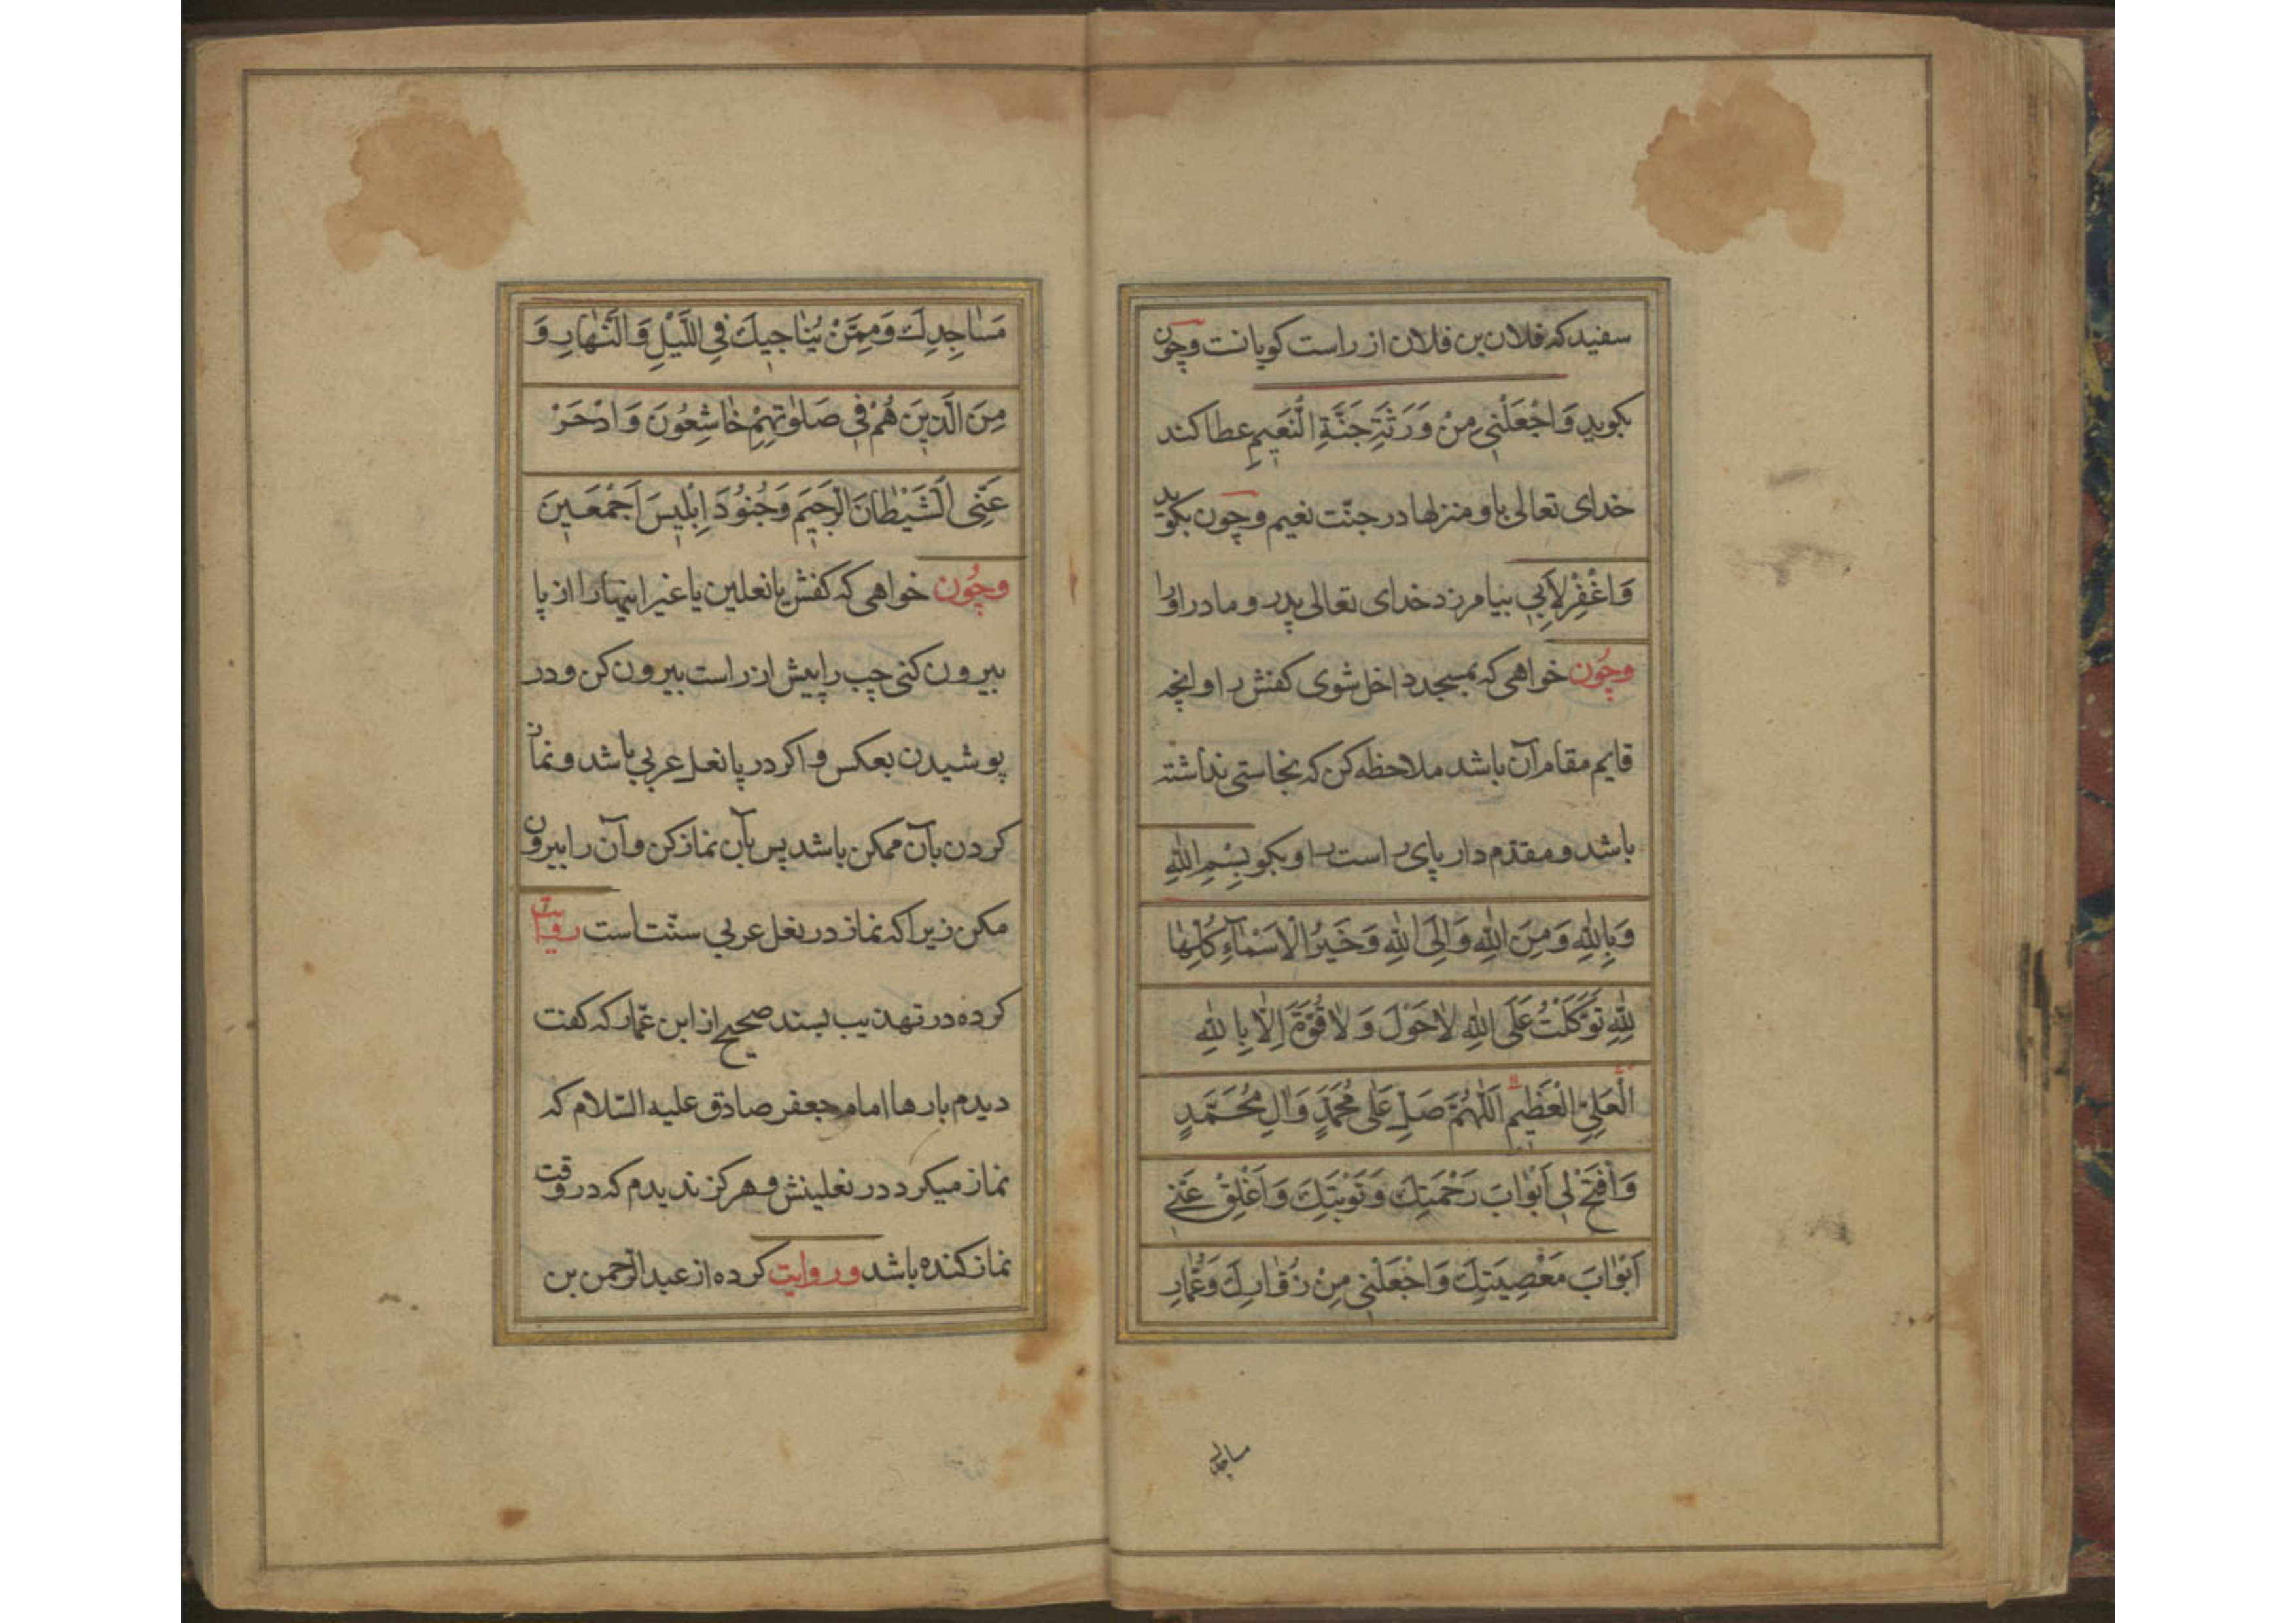 سفید که فلان بن فلان از راست کویانت وچون
بکوید وَاجْعَلْنی مِنْ وَرَثَةِ جَنَّةِ النَّعیمِ عطا کند
خدای تعالی باو منزلها در جنّت نعیم وچون بکوید
وَاغْفِرْ لِأَبی بیامرزد خدای تعالی پدر و مادر اورا
وچُون خواهی که بمسجد داخل شوی کفش را وانچه
قایم مقام آن باشد ملاحظه کن که نجاستی نداشته
باشد و مقدّم دار پای راست را و بکو بِسْمِ اللّٰهِ
وَبِاللّٰهِ وَمِنَ اللّٰهِ وَاِلَی اللّٰهِ وَخَیْرُ الْاَسْمٰآءِ کُلِّهٰا
لِلّٰهِ تَوَکَّلْتُ عَلَی اللّٰهِ لاٰحَوْلَ وَ لاٰ قُوَّةَ اِلّاٰ بِاللّٰهِ
الْعَلِیِّ الْعَظیمِ اَللّٰهُمَّ صَلِّ عَلٰی مُحَمَّدٍ وَاٰلِ مُحَمَّدٍ
وَافْتَحْ لی اَبْوٰابَ رَحْمَتِكَ وَتَوْبَتِكَ وَاَغْلِقْ عَنّی
اَبْوٰابَ مَعْصِیَتِكَ وَاجْعَلْنی مِنْ زُوّٰارِكَ وَعُمّٰارِ
مساجد
مَسٰاجِدِكَ وَمِمَّنْ یُنٰاجیكَ فِی اللَّیْلِ وَالنَّهٰارِ وَ
مِنَ الَّذینَ هُمْ فی صَلٰوتِهِمْ خٰاشِعُونَ وَادْحَرْ
عَنِّی الشَّیْطٰانَ الرَّجیمَ وَجُنُودَ اِبْلیسَ اَجْمَعینَ
وچُون خواهی که کفش یا نعلین یا غیر اینها را از پا
بیرون کنی چپ را پیش از راست بیرون کن و در
پوشیدن بعکس و اکر در پا نعل عربی باشد و نماز
کردن بآن ممکن باشد پس بآن نماز کن و آن را بیرون
مکن زیرا که نماز در نعل عربی سنّت است روایت
کرده در تهذیب بسند صحیح از ابن عمّار که کفت
دیدم بارها امام جعفر صادق علیه السّلام که
نماز میکرد در نعلینش و هرکز ندیدم که در وقت
نماز کنده باشد و روایت کرده از عبد الرّحمن بن